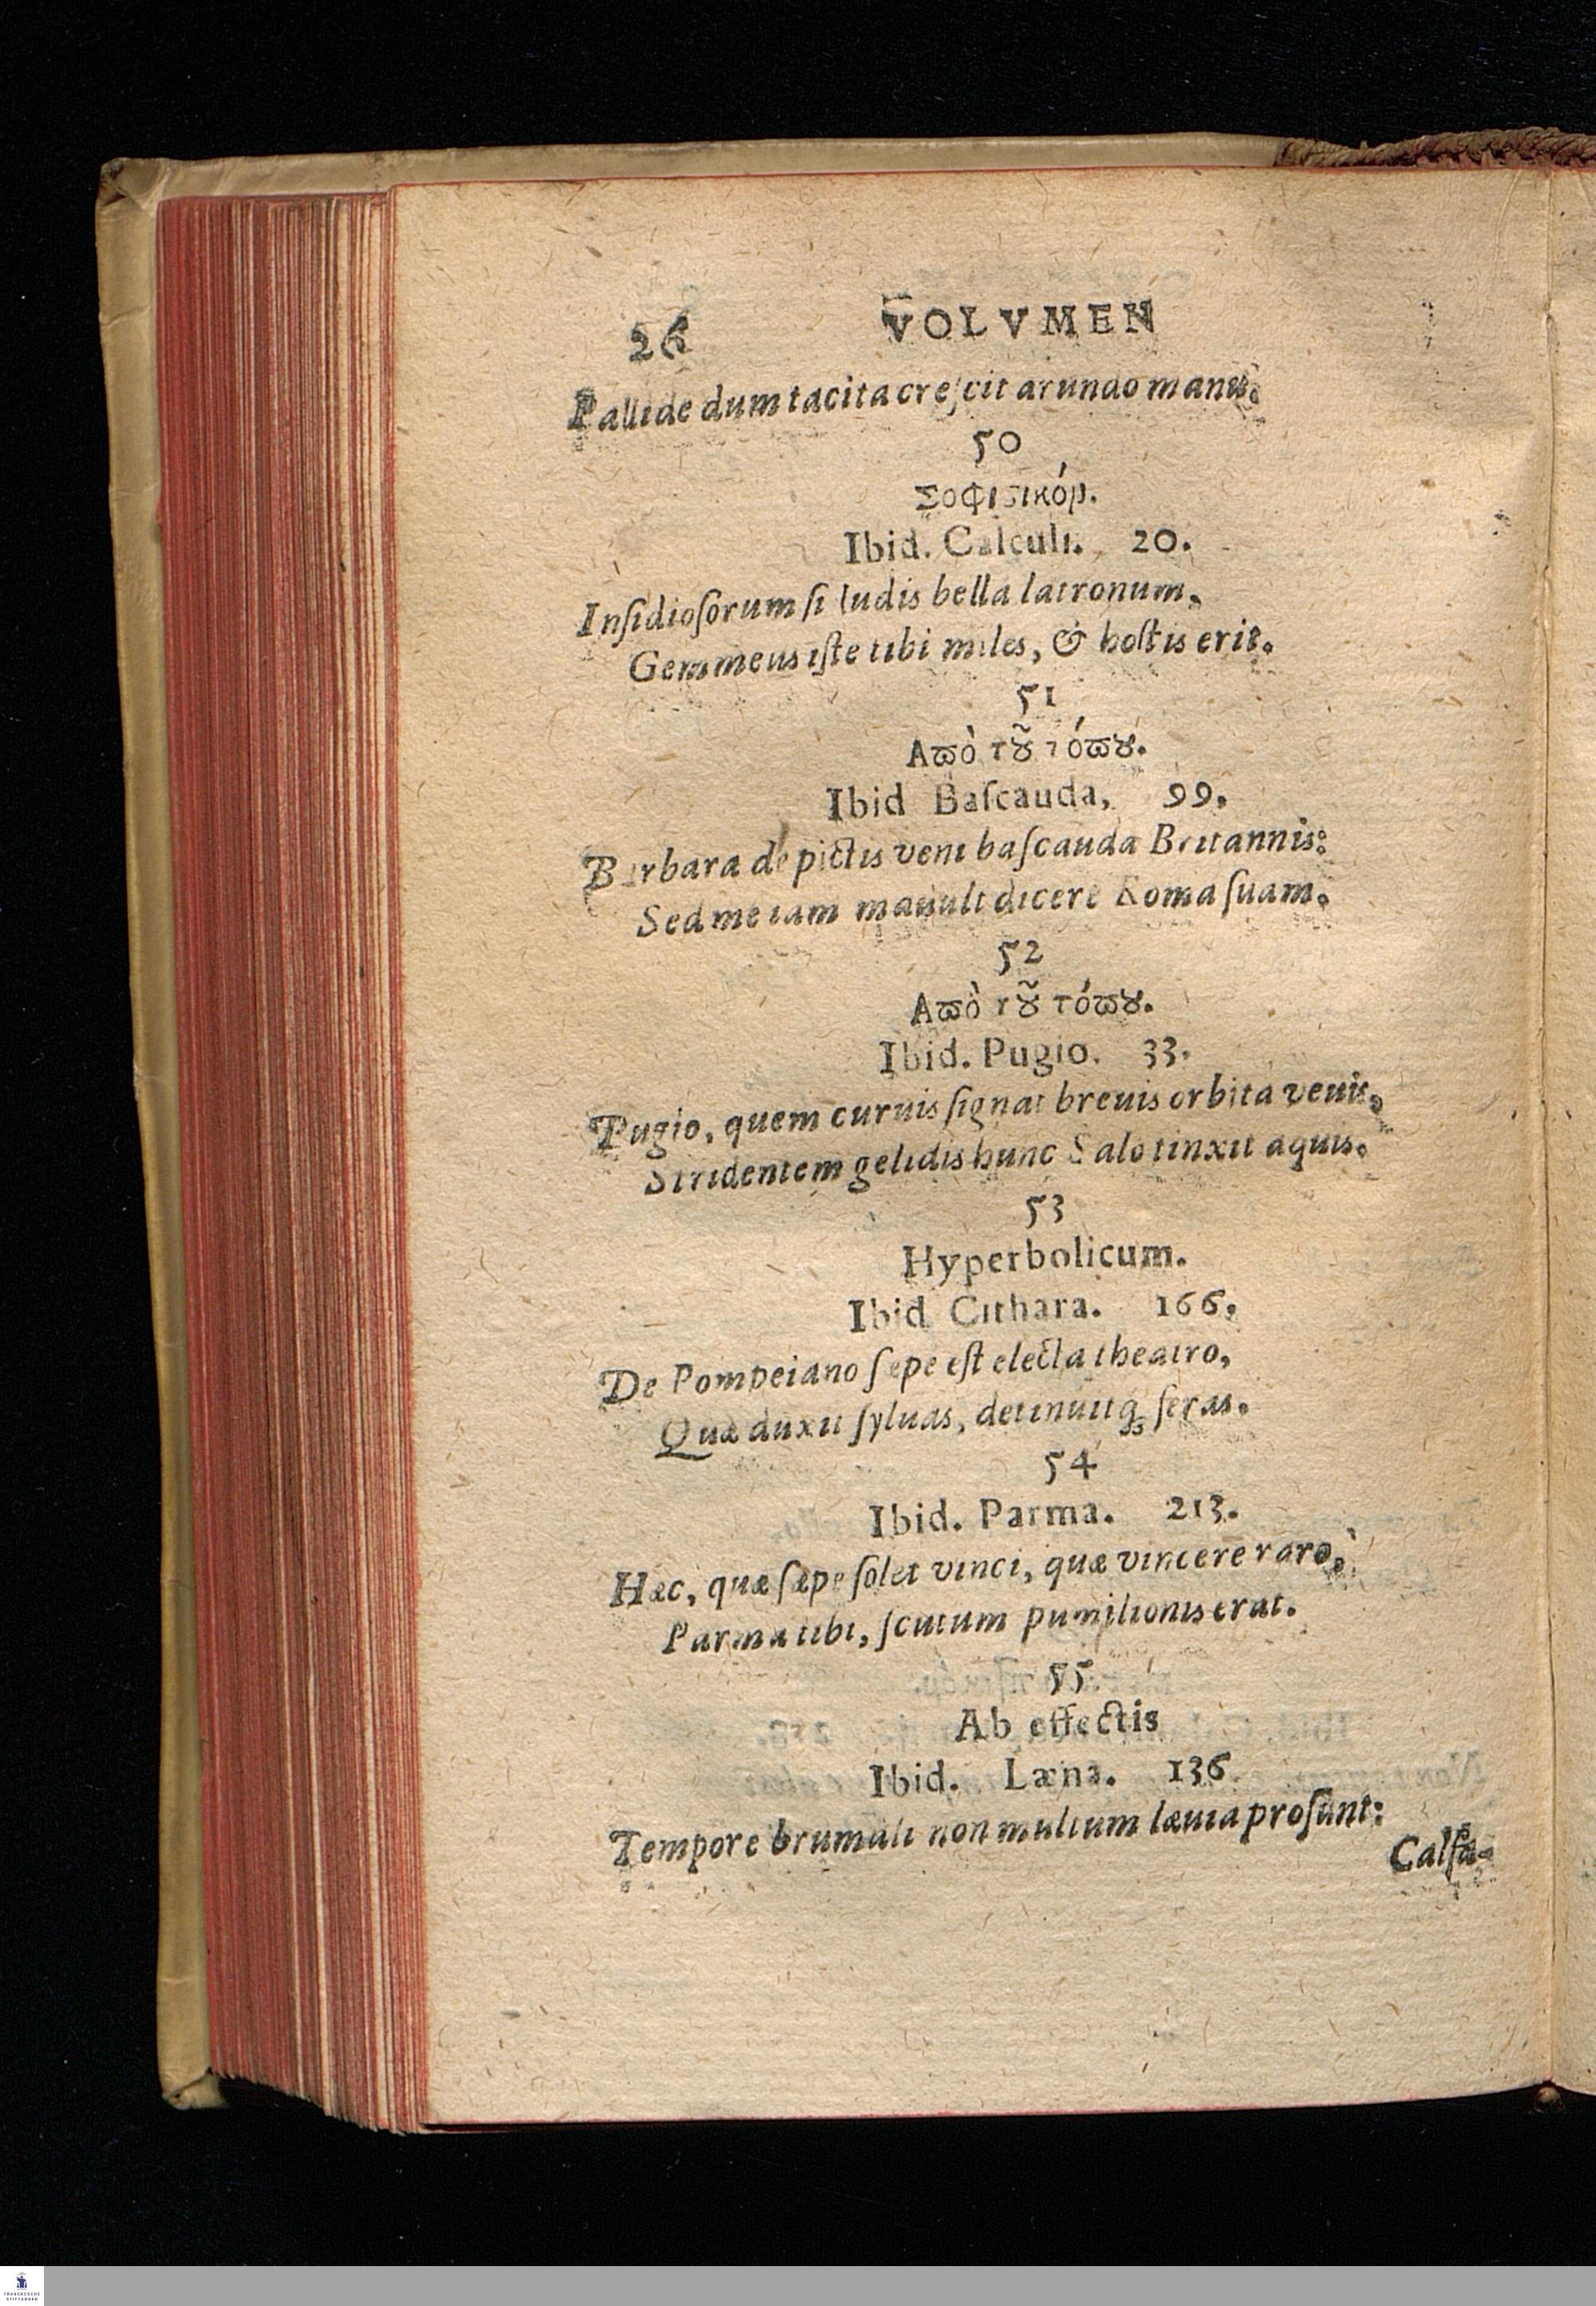 26 VOLVMEN
Pallide dum tacita creſcit arundo manu.
50
Σοφιϛικόμ.
Ibid. Calculi. 20.
Inſidioſorum ſi ludis bella latronum,
Gemmeus iſte tibi miles, & hoſtis erit.
51
Αϖὸ τȣ͂ τόϖȣ.
Ibid Baſcauda, 99.
Barbara de pictis veni baſcauda Britannis:
Sed me iam mauult dicere Roma ſuam.
52
Αϖὸ τȣ͂ τόϖȣ.
Ibid. Pugio. 33.
Pugio, quem curuis ſignat breuis orbita venis,
Stridentem gelidis hunc Salo tinxit aquis.
53
Hyperbolicum.
Ibid Cithara. 166.
De Pompeiano ſepe eſt electa theatro,
Quæ duxit ſyluas, detinuitq; feras.
54
Ibid. Parma. 213.
Hæc, quæ ſæpe ſolet vinci, quæ vincere rarò,
Parma tibi, ſcutum pumilionis erat.
55
Ab effectis
Ibid. Læna. 136
Tempore brumali non multum læuia proſunt:
Calfa-
FRANCKESCHE
STIFTUNGEN